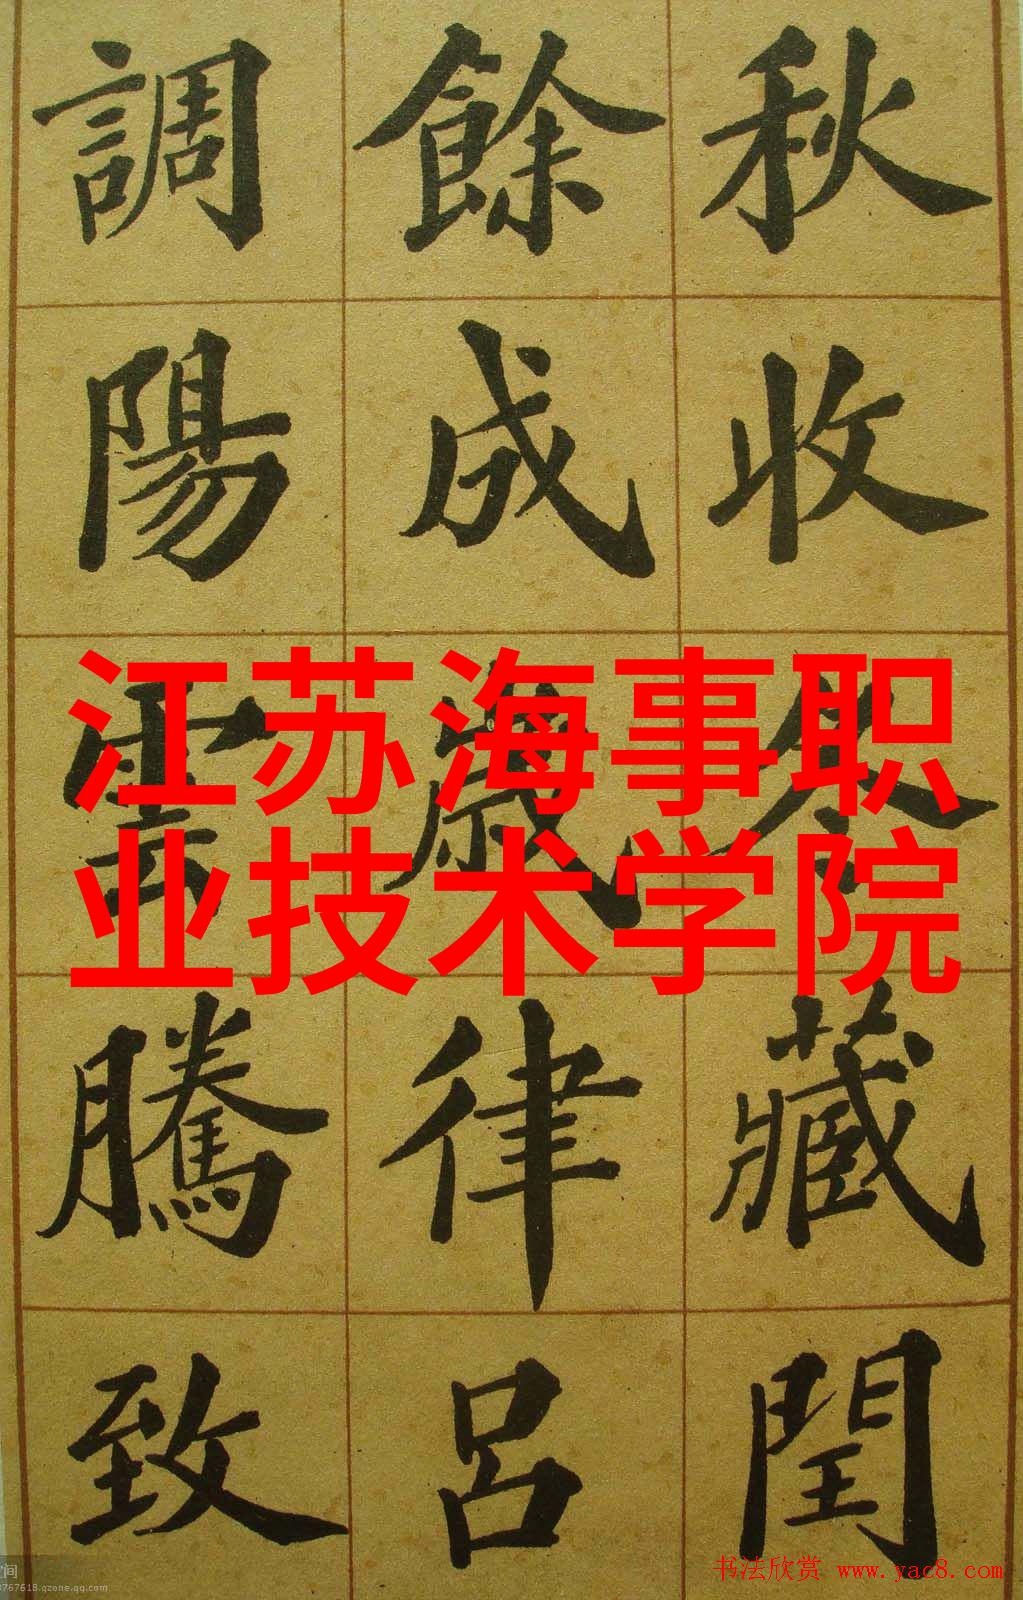 秋收冬藏閏
餘成歲律呂
調陽雲騰致
江苏海事职
业技术学院
书法欣赏 www.yac8.com
767618.qzone.qq.com